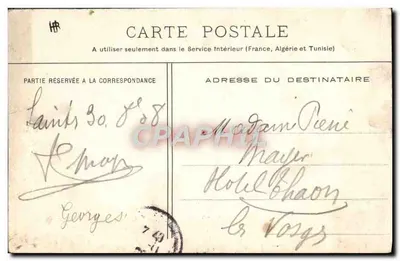 CARTE POSTALE
A utiliser seulement dans le Service Intérieur (France, Algérie et Tunisie)
PARTIE RÉSERVÉE A LA CORRESPONDANCE
ADRESSE DU DESTINATAIRE
30
Georges
Madame
Mayer
Hotel Thaon
les Vosges
CPAPHIL